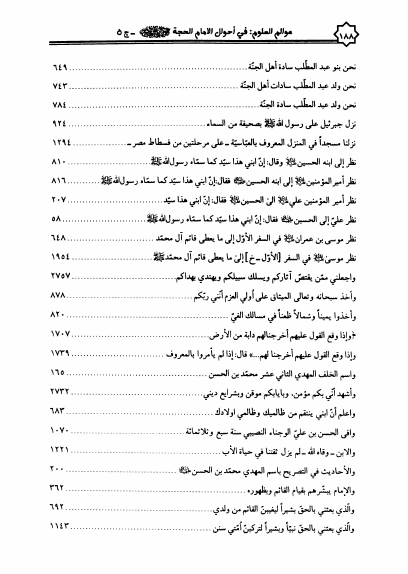 ١٨٨ عوالم العلوم: في أحوال الإمام الحجة ﷺ - ج ٥
نحن بنو عبد المطّلب سادة أهل الجنّة ٦٤٩
نحن ولد عبد المطّلب سادات أهل الجنّة ٧٤٣
نحن ولد عبد المطّلب سادة الجنّة ٧٨٤
نزل جبرئيل على رسول الله ﷺ بصحيفة من السماء ٩٢٤
نزلنا مسجداً في المنزل المعروف بالعبّاسيّة ـ على مرحلتين من فسطاط مصر ـ ١٢٩٤
نظر إلى ابنه الحسين وقال: إنّ ابني هذا سيّد كما سمّاه رسول الله ﷺ ٨١٠
نظر أمير المؤمنين إلى ابنه الحسين فقال: إنّ ابني هذا سيّد كما سمّاه رسول الله ﷺ ٨١٦
نظر أمير المؤمنين علي إلى الحسين فقال: إنّ ابني هذا سيّد ٢٠٧
نظر عليّ إلى الحسين فقال: إنّ ابني هذا سيّد كما سمّاه رسول الله ﷺ ٥٨
نظر موسى بن عمران في السفر الأوّل إلى ما يعطى قائم آل محمّد ٦٤٨
نظر موسى في السفر [الأوّل ـ خ] إلى ما يعطى قائم آل محمّد ١٩٥٤
واجعلني ممّن يقتصّ آثاركم ويسلك سبيلكم ويهتدي بهداكم ٢٧٥٧
وأخذ سبحانه وتعالى الميثاق على أُولي العزم أنّني ربّكم ٨٧٨
وأخذوا يميناً وشمالاً ظعناً في مسالك الغيّ ٨٢٠
﴿وإذا وقع القول عليهم أخرجنا لهم دابة من الأرض ١٧٠٧
وإذا وقع القول عليهم أخرجنا لهم...» قال: إذا لم يأمروا بالمعروف ١٧٣٩
واسم الخلف المهدي الثاني عشر محمّد بن الحسن ١٦٥
وأشهد أنّي بكم مؤمن، وبإيابكم موقن وبشرايع ديني ٢٧٣٢
واعلم أنّ ابني ينتقم من ظالميك وظالمي أولادك ٦٨٣
وافى الحسن بن عليّ الوجناء النصيبي سنة سبع وثلاثمائة ١٠٧٠
والابن ـ وقاه الله ـ لم يزل ثقتنا في حياة الأب ١٢٢١
والأحاديث في التصريح باسم المهدي محمّد بن الحسن ٢٠٠
والإمام يبشّرهم بقيام القائم وبظهوره ٣٦٢
والّذي بعثني بالحقّ بشيراً ليغيبنّ القائم من ولدي ٦٩٢
والّذي بعثني بالحقّ نبيّاً وبشيراً لتركبنّ أُمّتي سنن ١١٤٣